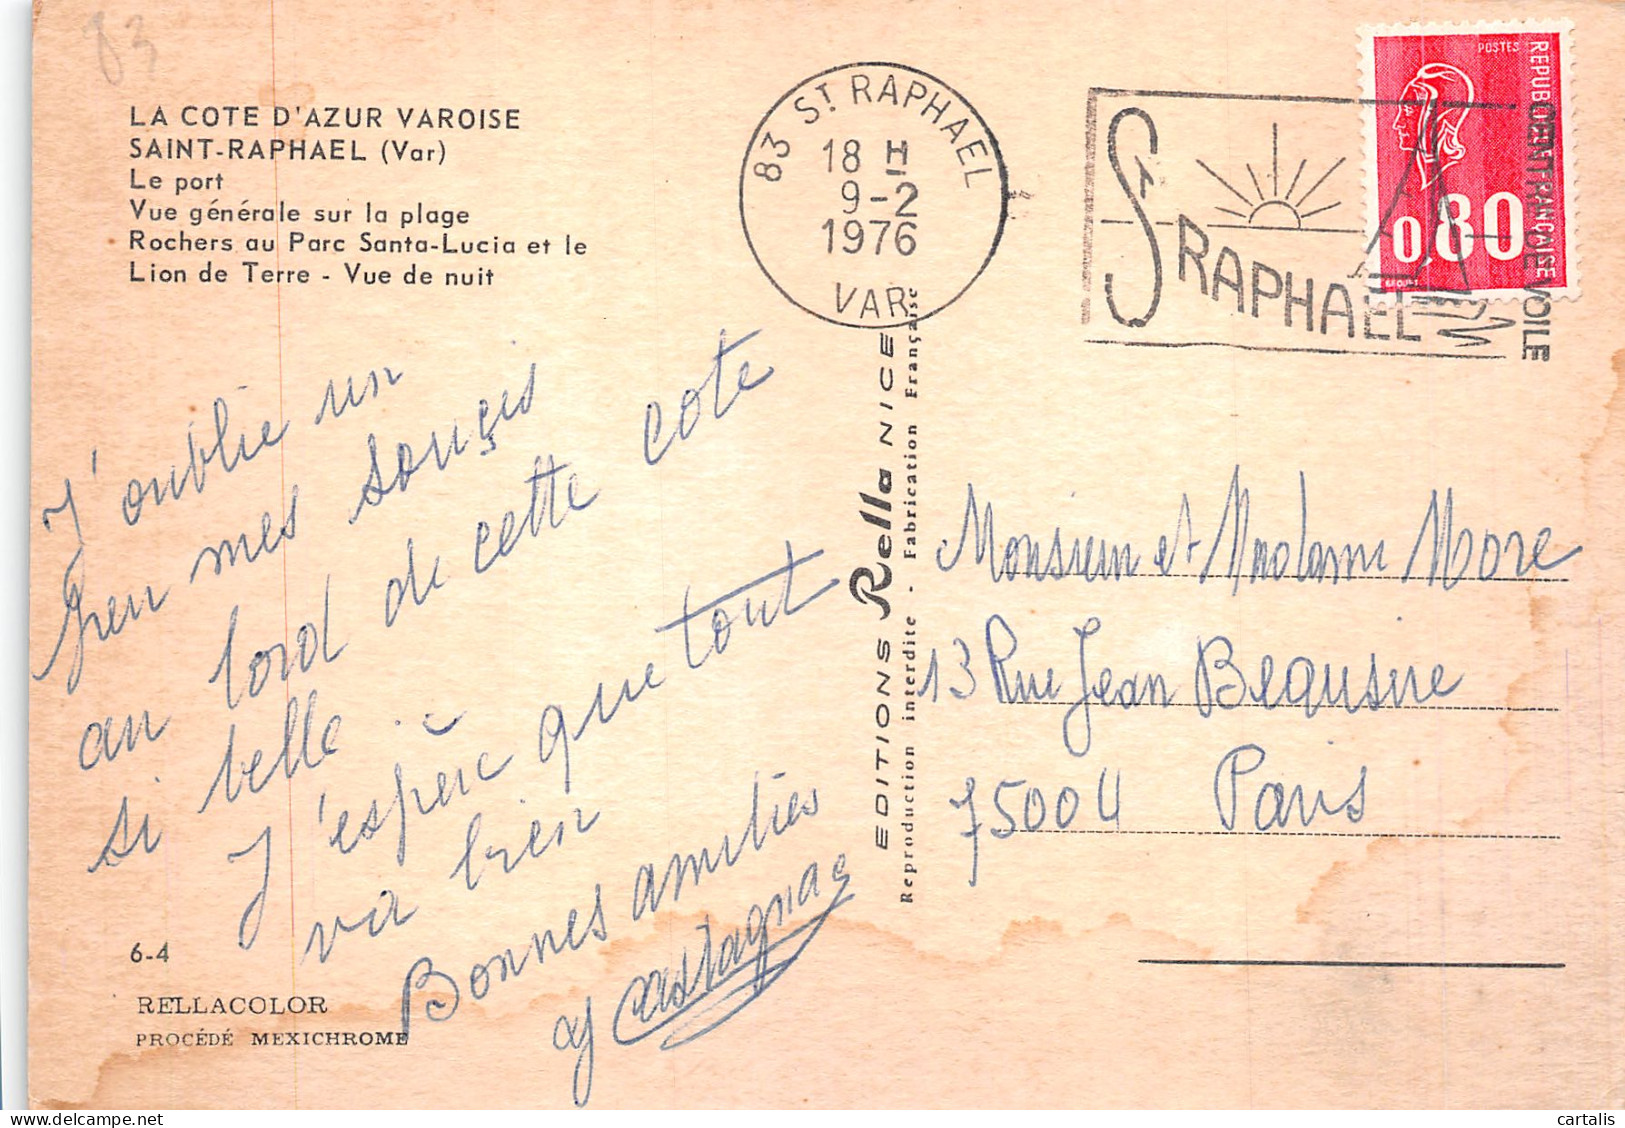 83
LA COTE D'AZUR VAROISE
SAINT-RAPHAEL (Var)
Le port
Vue générale sur la plage
Rochers au Parc Santa-Lucia et le
Lion de Terre - Vue de nuit
83 ST RAPHAEL
18 H
9-2
1976
VAR
ST RAPHAEL
CENTRE DE VOILE
POSTES
REPUBLIQUE FRANÇAISE
0,80
J'oublie un
peu mes souçis
au bord de cette cote
si belle
J'espère que tout
va bien
Bonnes amitiés
Castagnac
EDITIONS Rella NICE
Reproduction interdite - Fabrication Française
Monsieur et Madame More
13 Rue Jean Beausire
75004 Paris
6-4
RELLACOLOR
PROCÉDÉ MEXICHROME
cartalis